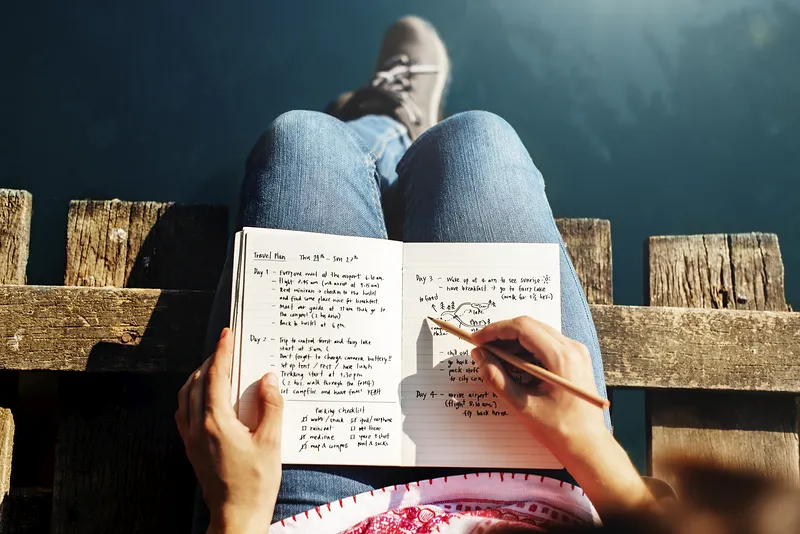 Travel Plan Thu 24th - Sun 27th
Day 1 - Everyone meet at the airport 6 am
- Flight 7.45 am (will arrive at 9.15 am)
- Rent minivan → check in to the hostel
and find some place nice for breakfast
- Meet our guide at 11 am then go to
the campsite (2 hrs drive)
- Back to hostel at 6 pm
Day 2 - Trip to central forest and fairy lake
start at 5 am
- Don't forget to charge camera battery!!
- Set up tent / rest / have lunch
- Trekking start at 1.30 pm
(2 hrs walk through the forest)
- set campfire and have fun! YEAH
Packing checklist
water / snack
ipod / earphone
raincoat
medicine
map & compass
pant & socks
Day 3 - Wake up at 4 am to see sunrise
- have breakfast → go to fairy lake
(walk for 1½ hrs)
to forest
lake
- chill
- go back to
- pack stuff
to city
Day 4 - arrive airport
(flight 8.30 am)
fly back home